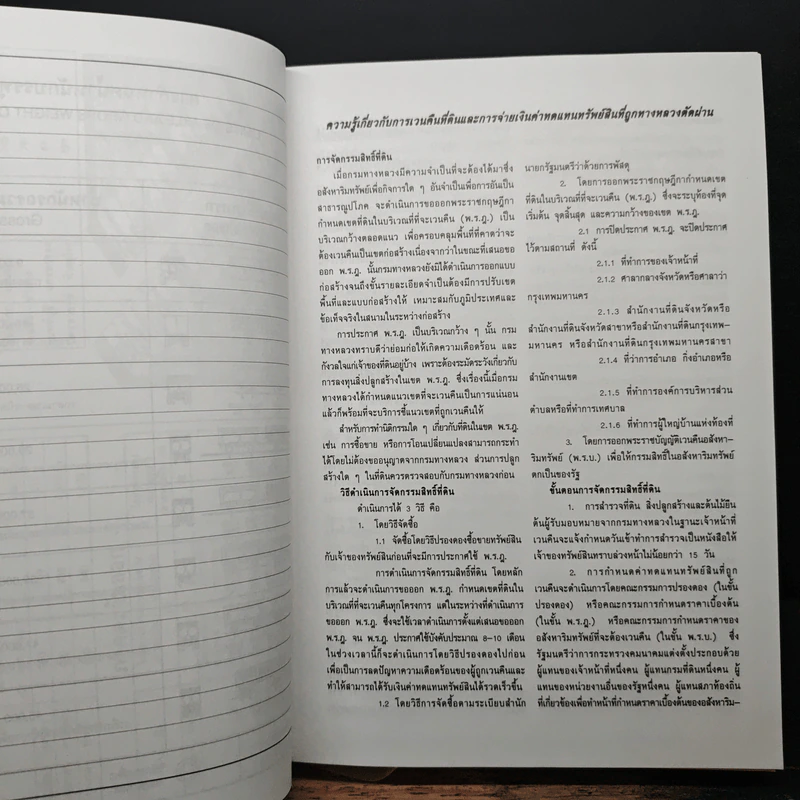 ความรู้เกี่ยวกับการเวนคืนที่ดินและการจ่ายเงินค่าทดแทนทรัพย์สินที่ถูกทางหลวงตัดผ่าน
การจัดกรรมสิทธิ์ที่ดิน
เมื่อกรมทางหลวงมีความจำเป็นที่จะต้องได้มาซึ่ง
อสังหาริมทรัพย์เพื่อกิจการใด ๆ อันจำเป็นเพื่อการอันเป็น
สาธารณูปโภค จะดำเนินการขอออกพระราชกฤษฎีกา
กำหนดเขตที่ดินในบริเวณที่ที่จะเวนคืน (พ.ร.ฎ.) เป็น
บริเวณกว้างตลอดแนว เพื่อครอบคลุมพื้นที่ที่คาดว่าจะ
ต้องเวนคืนเป็นเขตก่อสร้างเนื่องจากว่าในขณะที่เสนอขอ
ออก พ.ร.ฎ. นั้นกรมทางหลวงยังมิได้ดำเนินการออกแบบ
ก่อสร้างจนถึงขั้นรายละเอียดจำเป็นต้องมีการปรับเขต
พื้นที่และแบบก่อสร้างให้ เหมาะสมกับภูมิประเทศและ
ข้อเท็จจริงในสนามในระหว่างก่อสร้าง
การประกาศ พ.ร.ฎ. เป็นบริเวณกว้าง ๆ นั้น กรม
ทางหลวงทราบดีว่าย่อมก่อให้เกิดความเดือดร้อน และ
กังวลใจแก่เจ้าของที่ดินอยู่บ้าง เพราะต้องระมัดระวังเกี่ยวกับ
การลงทุนสิ่งปลูกสร้างในเขต พ.ร.ฎ. ซึ่งเรื่องนี้เมื่อกรม
ทางหลวงได้กำหนดแนวเขตที่จะเวนคืนเป็นการแน่นอน
แล้วก็พร้อมที่จะบริการชี้แนวเขตที่ถูกเวนคืนให้
สำหรับการทำนิติกรรมใด ๆ เกี่ยวกับที่ดินในเขต พ.ร.ฎ.
เช่น การซื้อขาย หรือการโอนเปลี่ยนแปลงสามารถกระทำ
ได้โดยไม่ต้องขออนุญาตจากกรมทางหลวง ส่วนการปลูก
สร้างใด ๆ ในที่ดินควรตรวจสอบกับกรมทางหลวงก่อน
วิธีดำเนินการจัดกรรมสิทธิ์ที่ดิน
ดำเนินการได้ 3 วิธี คือ
1. โดยวิธีจัดซื้อ
1.1 จัดซื้อโดยวิธีปรองดองซื้อขายทรัพย์สิน
กับเจ้าของทรัพย์สินก่อนที่จะมีการประกาศใช้ พ.ร.ฎ.
การดำเนินการจัดกรรมสิทธิ์ที่ดิน โดยหลัก
การแล้วจะดำเนินการขอออก พ.ร.ฎ. กำหนดเขตที่ดินใน
บริเวณที่ที่จะเวนคืนทุกโครงการ แต่ในระหว่างที่ดำเนินการ
ขอออก พ.ร.ฎ. ซึ่งจะใช้เวลาดำเนินการตั้งแต่เสนอขอออก
พ.ร.ฎ. จน พ.ร.ฎ. ประกาศใช้บังคับประมาณ 8-10 เดือน
ในช่วงเวลานี้ก็จะดำเนินการโดยวิธีปรองดองไปก่อน
เพื่อเป็นการลดปัญหาความเดือดร้อนของผู้ถูกเวนคืนและ
ทำให้สามารถได้รับเงินค่าทดแทนทรัพย์สินได้รวดเร็วขึ้น
1.2 โดยวิธีการจัดซื้อตามระเบียบสำนัก
นายกรัฐมนตรีว่าด้วยการพัสดุ
2. โดยการออกพระราชกฤษฎีกากำหนดเขต
ที่ดินในบริเวณที่ที่จะเวนคืน (พ.ร.ฎ.) ซึ่งจะระบุท้องที่จุด
เริ่มต้น จุดสิ้นสุด และความกว้างของเขต พ.ร.ฎ.
2.1 การปิดประกาศ พ.ร.ฎ. จะปิดประกาศ
ไว้ตามสถานที่ ดังนี้
2.1.1 ที่ทำการของเจ้าหน้าที่
2.1.2 ศาลากลางจังหวัดหรือศาลาว่า
กรุงเทพมหานคร
2.1.3 สำนักงานที่ดินจังหวัดหรือ
สำนักงานที่ดินจังหวัดสาขาหรือสำนักงานที่ดินกรุงเทพ-
มหานคร หรือสำนักงานที่ดินกรุงเทพมหานครสาขา
2.1.4 ที่ว่าการอำเภอ กิ่งอำเภอหรือ
สำนักงานเขต
2.1.5 ที่ทำการองค์การบริหารส่วน
ตำบลหรือที่ทำการเทศบาล
2.1.6 ที่ทำการผู้ใหญ่บ้านแห่งท้องที่
3. โดยการออกพระราชบัญญัติเวนคืนอสังหา-
ริมทรัพย์ (พ.ร.บ.) เพื่อให้กรรมสิทธิ์ในอสังหาริมทรัพย์
ตกเป็นของรัฐ
ขั้นตอนการจัดกรรมสิทธิ์ที่ดิน
1. การสำรวจที่ดิน สิ่งปลูกสร้างและต้นไม้ยืน
ต้นผู้รับมอบหมายจากกรมทางหลวงในฐานะเจ้าหน้าที่
เวนคืนจะแจ้งกำหนดวันเข้าทำการสำรวจเป็นหนังสือให้
เจ้าของทรัพย์สินทราบล่วงหน้าไม่น้อยกว่า 15 วัน
2. การกำหนดค่าทดแทนทรัพย์สินที่ถูก
เวนคืนจะดำเนินการโดยคณะกรรมการปรองดอง (ในขั้น
ปรองดอง) หรือคณะกรรมการกำหนดราคาเบื้องต้น
(ในขั้น พ.ร.ฎ.) หรือคณะกรรมการกำหนดราคาของ
อสังหาริมทรัพย์ที่จะต้องเวนคืน (ในขั้น พ.ร.บ.) ซึ่ง
รัฐมนตรีว่าการกระทรวงคมนาคมแต่งตั้งประกอบด้วย
ผู้แทนของเจ้าหน้าที่หนึ่งคน ผู้แทนกรมที่ดินหนึ่งคน ผู้
แทนของหน่วยงานอื่นของรัฐหนึ่งคน ผู้แทนสภาท้องถิ่น
ที่เกี่ยวข้องเพื่อทำหน้าที่กำหนดราคาเบื้องต้นของอสังหาริม-